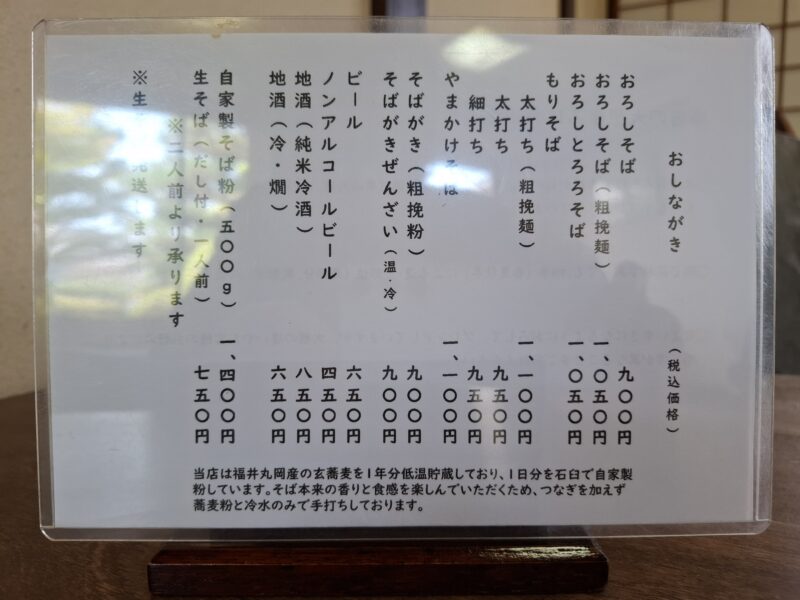 おしながき
（税込価格）
おろしそば 九〇〇円
おろしそば（粗挽麺） 一、〇五〇円
おろしとろろそば 一、〇五〇円
もりそば
太打ち（粗挽麺） 一一〇〇円
太打ち 九五〇円
細打ち 九五〇円
やまかけそば 一、一〇〇円
そばがき（粗挽粉） 九〇〇円
そばがきぜんざい（温・冷） 九〇〇円
ビール 六五〇円
ノンアルコールビール 四五〇円
地酒（純米冷酒） 八五〇円
地酒（冷・燗） 六五〇円
自家製そば粉（五〇〇g） 一、四〇〇円
生そば（だし付・一人前） 七五〇円
※二人前より承ります
※生 発送します
当店は福井丸岡産の玄蕎麦を1年分低温貯蔵しており、1日分を石臼で自家製
粉しています。そば本来の香りと食感を楽しんでいただくため、つなぎを加えず
蕎麦粉と冷水のみで手打ちしております。